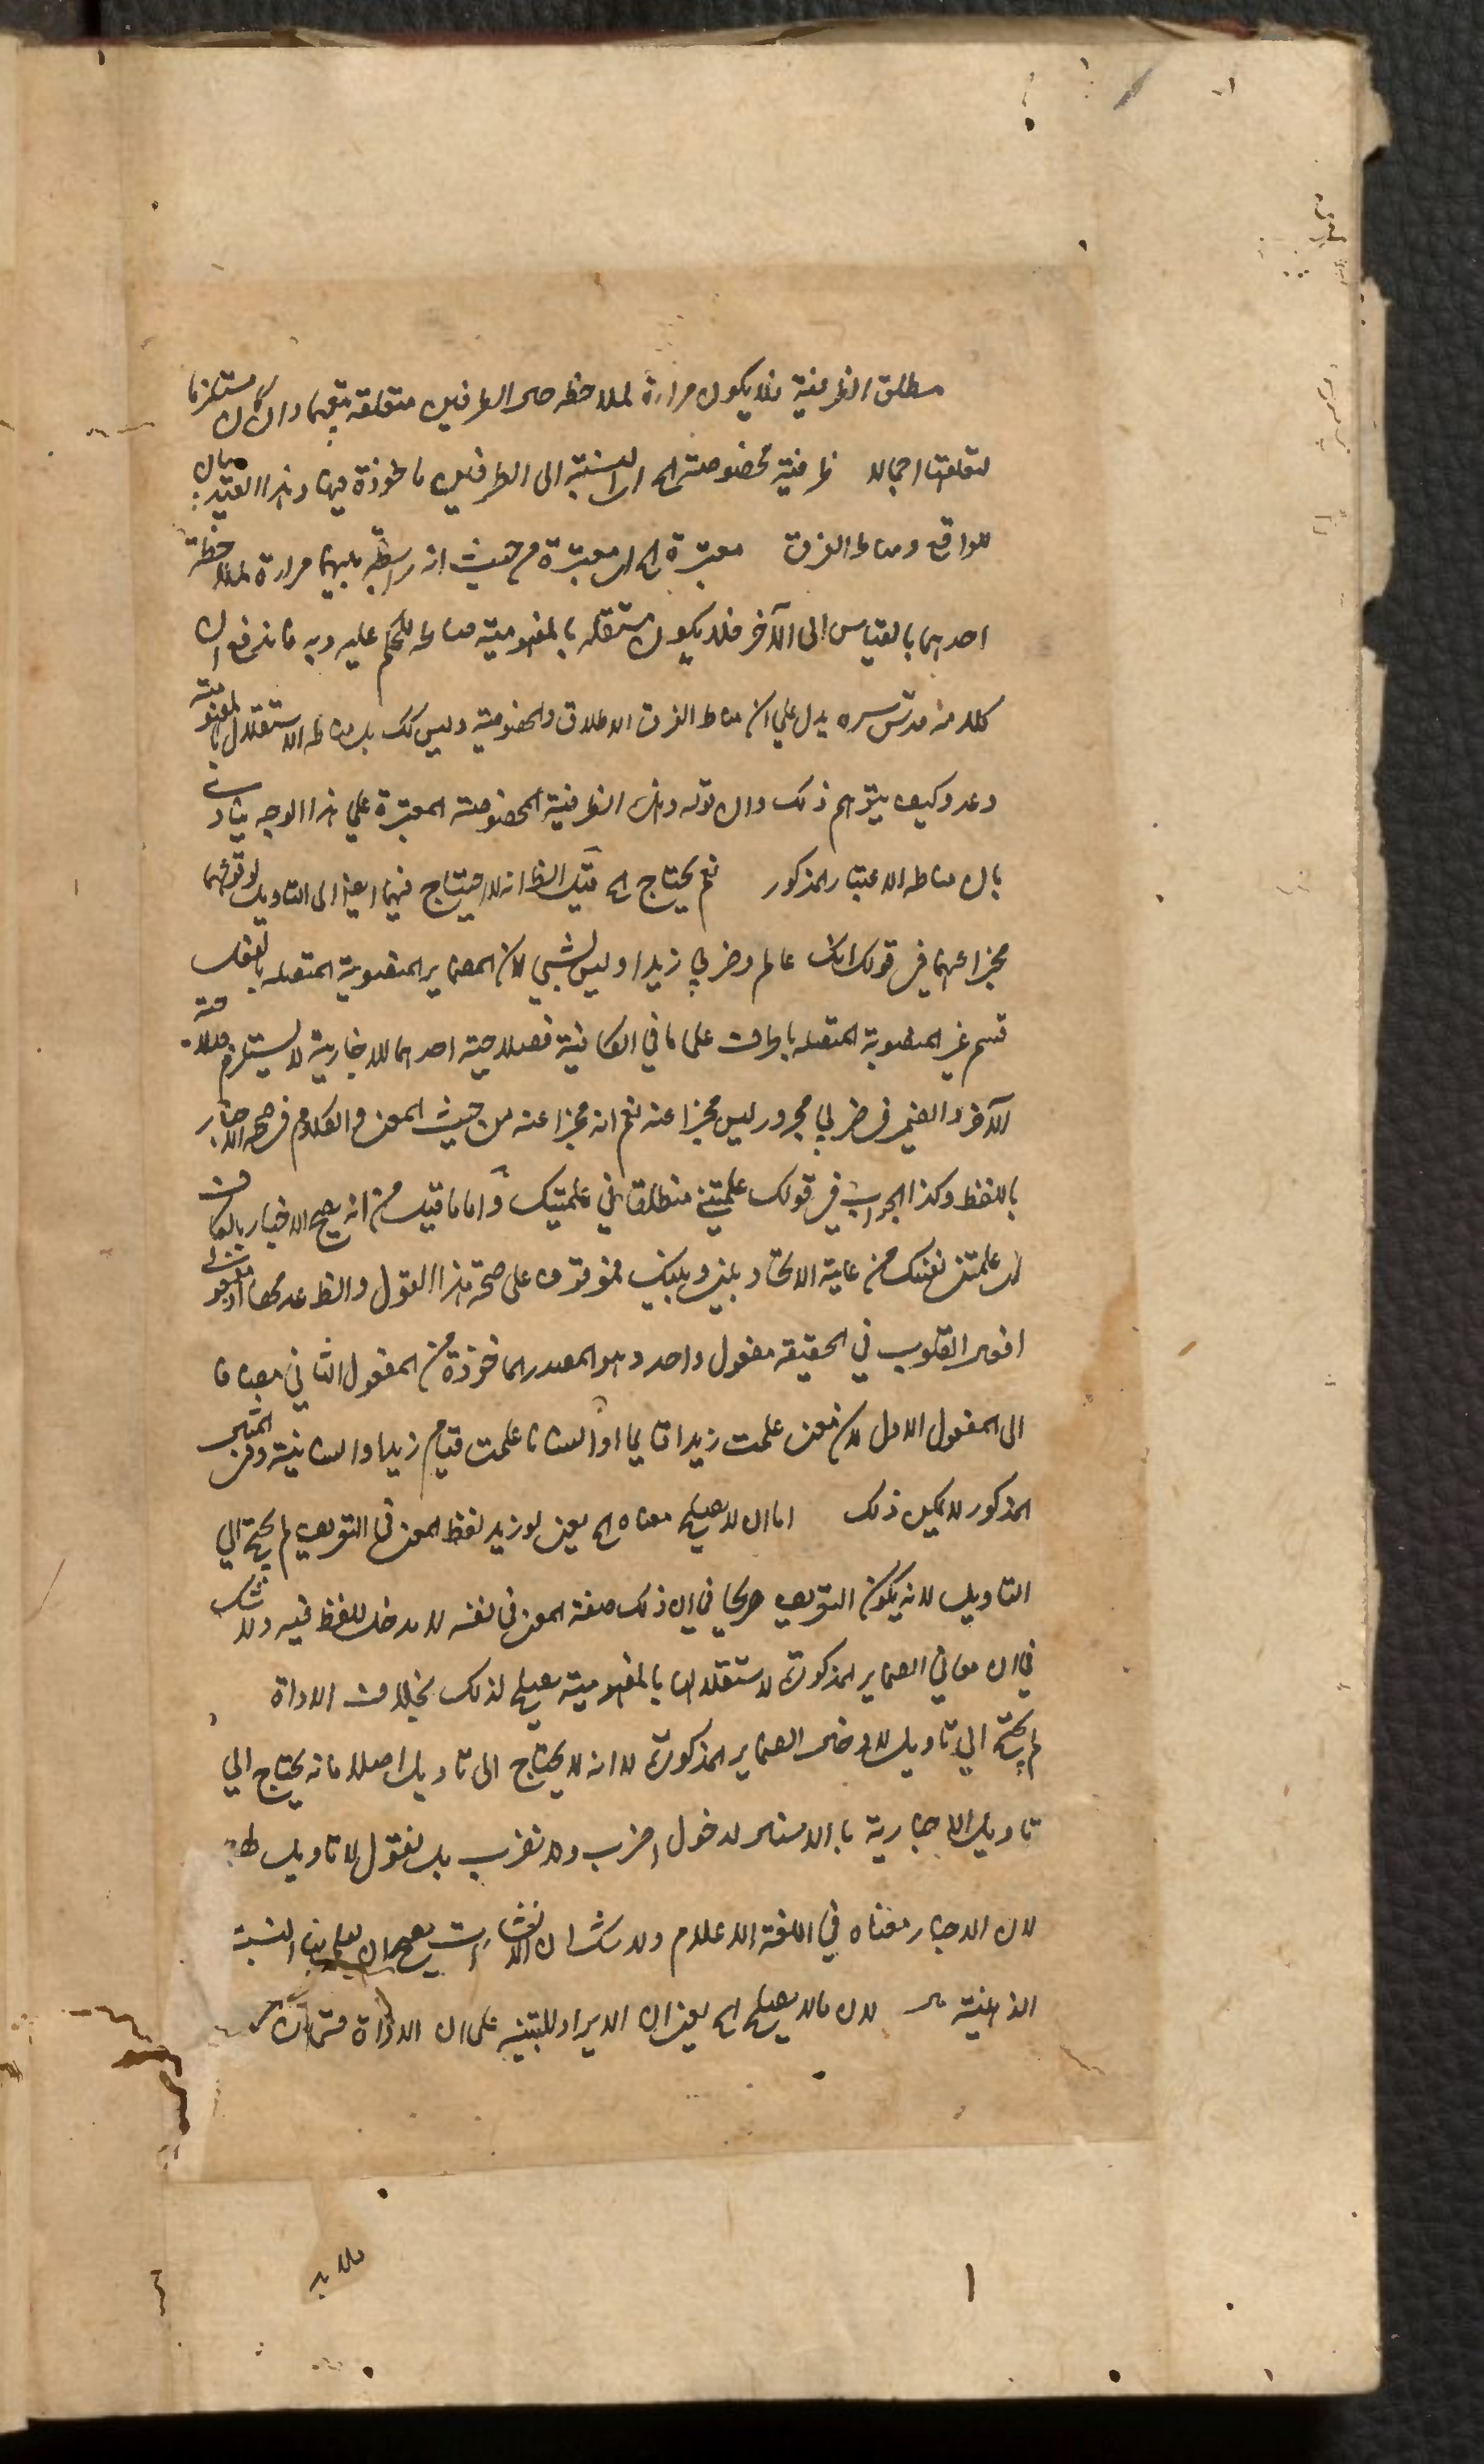 مطلق الظرفية فلا يكون مراءة لملاحظه حال الطرفين متعلقه بتعقلهما وان كان مستلزما
لتعلقهما اجمالا ظرفية مخصوصة اى النسبة الى الطرفين ماخوذة فيها وهذا القيد بيان
للواقع ومناط الفرق معتبرة اى معتبرة من حيث انه رابطة بينهما مراءة لملاحظة
احدهما بالقياس الى الآخر فلا يكون مستقله بالمفهومية صالحه للحكم عليه وبه فاندفع ان
كلامه قدس سره يدل علي ان مناط الفرق الاطلاق والخصوصية وليس كك بل مناطه الاستقلال بالمفهومية
وعدمه وكيف يتوهم ذلك وان قوله وهذه الظرفية المخصوصة المعتبرة علي هذا الوجه ينادى
بان مناطه الاعتبار المذكور نعم يحتاج اى قيل الظ انه لا احتياج فيهما ايضا الى التاويل لوقوعهما
مخبرا عنهما في قولك انك عالم وضربي زيدا وليس بشيئ لان الضماير المنصوبة المتصله بالفعل
قسم غير المنصوبة المتصله بالحرف على ما في الكافية فصلاحية احدهما للاخبارية لا يستلزم صلاحية
الآخر والضمير في ضربي مجرور ليس مخبرا عنه نعم انه مخبرا عنه من حيث المعنى والكلام في صحه الاخبار
باللفظ وكذا الجواب في قولك علمتني منطلقا في علمتيك واما ما قيل من انه يصح الاخبار بالكاف
علمتني نفسك من غاية الاتحاد بيني وبينك فموقوف على صحة هذا القول والظ عدمها اذ مفعولى
افعال القلوب في الحقيقه مفعول واحد وهو المصدر الماخوذة من المفعول الثاني مضافا
الى المفعول الاول لان معنى علمت زيدا قايما او انسانا علمت قيام زيدا وانسانية وفي المثال
المذكور لا يمكن ذلك اما ان لا يصلح معناه اى يعنى لو زيد لفظ المعنى في التعريف لم يحتج الي
التاويل لانه يكون التعريف صريحا في ان ذلك صفة المعنى في نفسه لا مدخل للفظ فيه ولا شك
في ان معاني الضماير المذكورة لاستقلالها بالمفهومية يصلح لذلك بخلاف الاداة
لم يحتج الي تاويل لادخال الضماير المذكورة لا انه لا يحتاج الى تاويل اصلا فانه يحتاج الي
تاويل الاخبارية بالاسناد لدخول اضرب ولا تضرب بل نقول لا تاويل
لان الاخبار معناه في اللغة الاعلام ولا شك ان الانشاءات يصح ان يعلم بها النسبة
الذهنية لان ما لا يصلح اى يعنى ان الايراد للتنبيه على ان الاداة قسمان
ملا بد
١